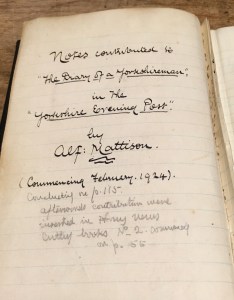 Notes contributed to
"The Diary of a Yorkshireman",
in The
"Yorkshire Evening Post".
by
Alf: Mattison.
(Commencing February. 1924).
Concluding on p. 115
afterwards contributions were
inserted in my news
Cutting books. No 2. commencing
at p. 55